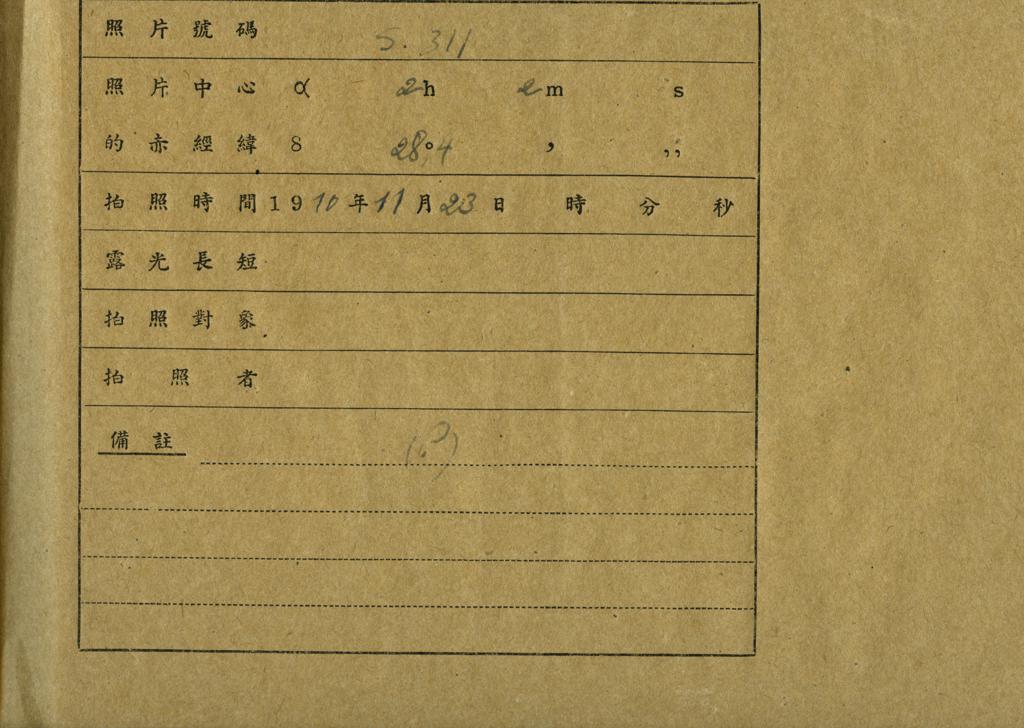 照片號碼 S. 311
照片中心 α 2h 2m s
的赤經緯 δ 28°.4 ′ ″
拍照時間 1910年11月23日 時 分 秒
露光長短
拍照對象
拍照者
備註 (6)